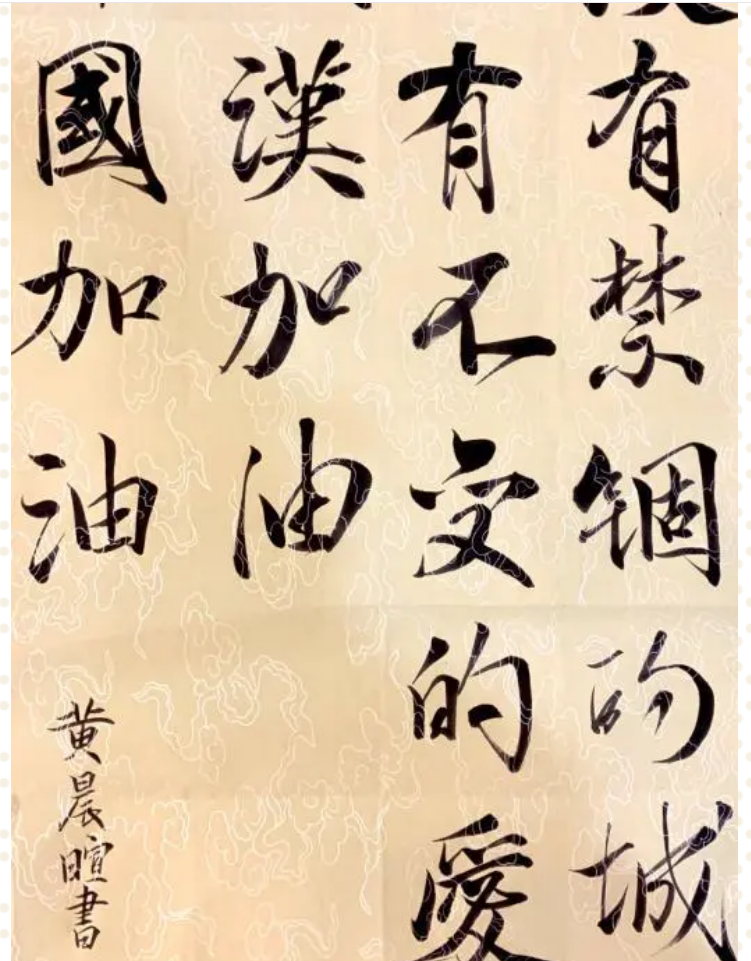 有禁锢的城
有不变的愛
漢加油
國加油
黄晨暄書